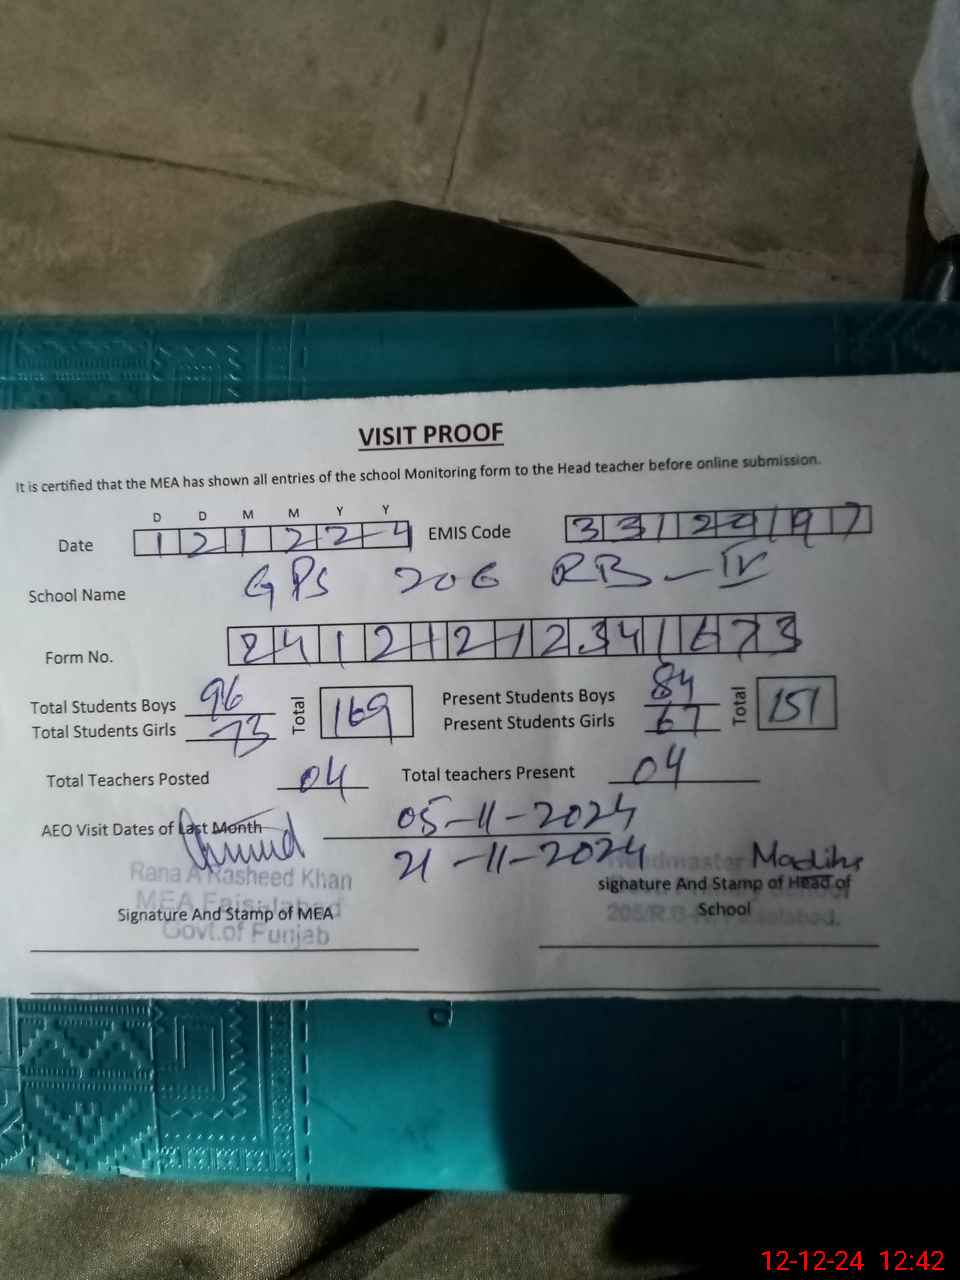 VISIT PROOF
It is certified that the MEA has shown all entries of the school Monitoring form to the Head teacher before online submission.
D D M M Y Y
Date 1 2 1 2 2 4 EMIS Code 3 3 1 2 9 1 9 7
School Name GPS 206 RB - IV
Form No. 2 4 1 2 1 2 1 2 3 4 1 6 7 3
Total Students Boys 96 Total 169 Present Students Boys 84 Total 151
Total Students Girls 73 Present Students Girls 67
Total Teachers Posted 04 Total teachers Present 04
AEO Visit Dates of Last Month 05-11-2024
21-11-2024
Headmaster Madiha
Rana A Rasheed Khan signature And Stamp of Head of
MEA Faisalabad
Signature And Stamp of MEA School
Govt.of Punjab Faisalabad.
12-12-24 12:42